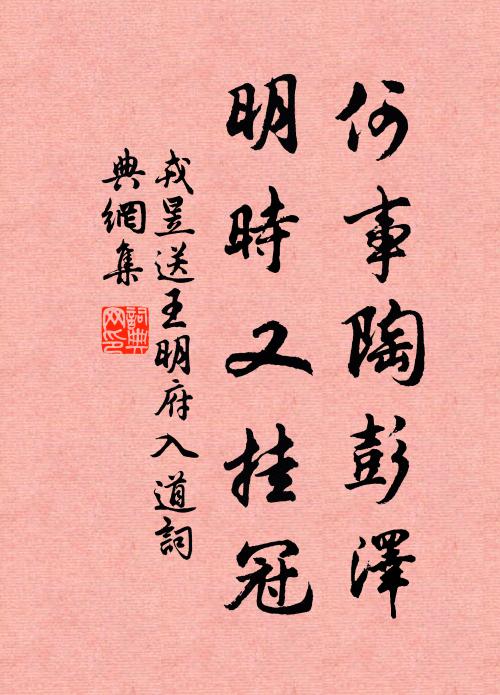 何事陶彭澤
明時又挂冠
戎昱送王明府入道詞
典網集
詞典
网印